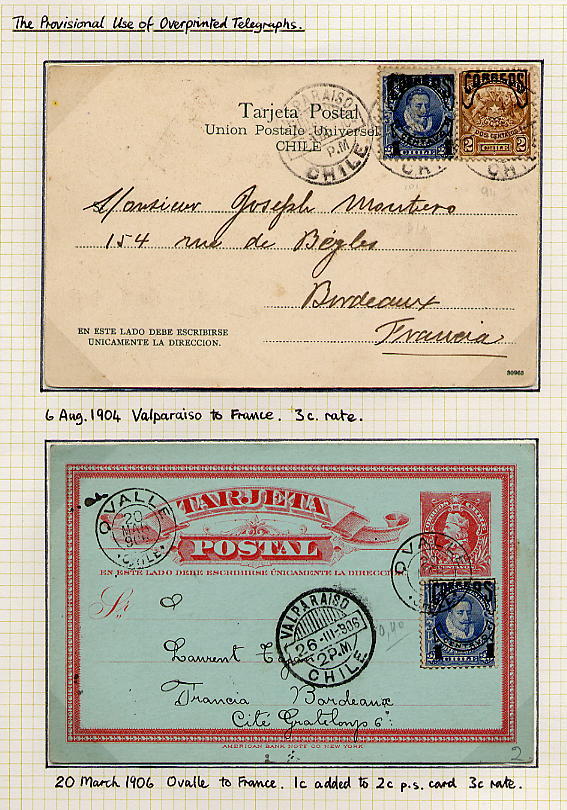 The Provisional Use of Overprinted Telegraphs.
Tarjeta Postal
Union Postale Universel
CHILE
VALPARAISO
P.M
CHILE
CORREOS
CENTAVO
1 1
CHILE
CORREOS
DOS CENTAVOS
2 CHILE 2
Monsieur Joseph Montero
154 rue de Bègles
Bordeaux
Francia
EN ESTE LADO DEBE ESCRIBIRSE
ÚNICAMENTE LA DIRECCION.
30963
6 Aug. 1904 Valparaiso to France. 3c. rate.
OVALLE
20
MAR
CHILE
TARJETA
POSTAL
EN ESTE LADO DEBE ESCRIBIRSE ÚNICAMENTE LA DIRECCION
OVALLE
CORREOS
CENTAVO
1 1
CHILE
VALPARAISO
26-III-906
2P.M
CHILE
0,40
Laurent
Francia Bordeaux
Cité
AMERICAN BANK NOTE CO NEW YORK
2
20 March 1906 Ovalle to France. 1c added to 2c p.s. card 3c rate.